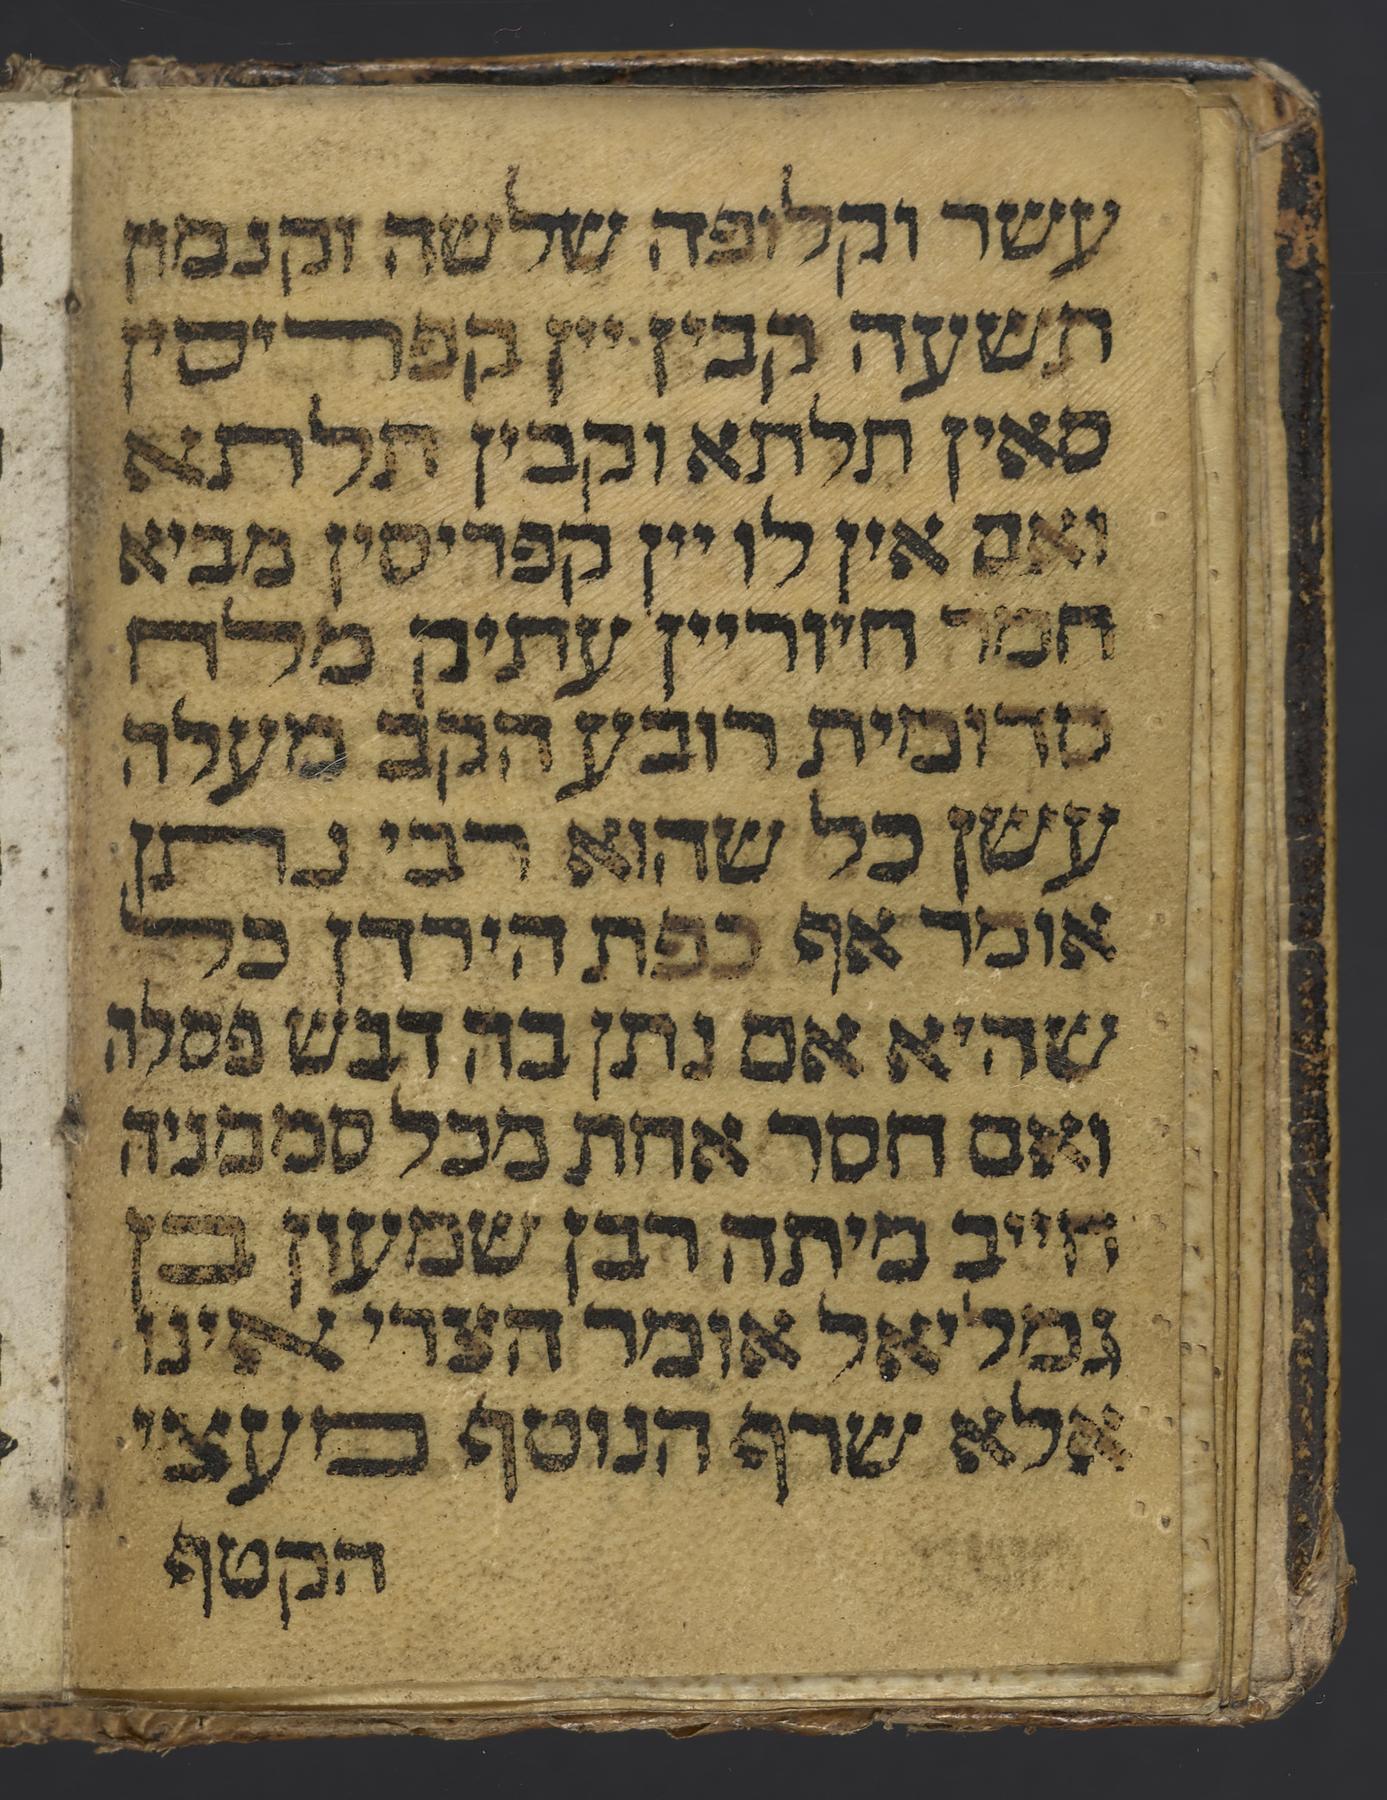 עשר וקלופה שלשה וקנמון
תשעה קבין יין קפריסין
סאין תלתא וקבין תלתא
ואם אין לו יין קפריסין מביא
חמר חיוריין עתיק מלח
סדומית רובע הקב מעלה
עשן כל שהוא רבי נתן
אומר אף כפת הירדן כל
שהיא אם נתן בה דבש פסלה
ואם חסר אחת מכל סממניה
חייב מיתה רבן שמעון בן
גמליאל אומר הצרי אינו
אלא שרף הנוטף מעצי
הקטף